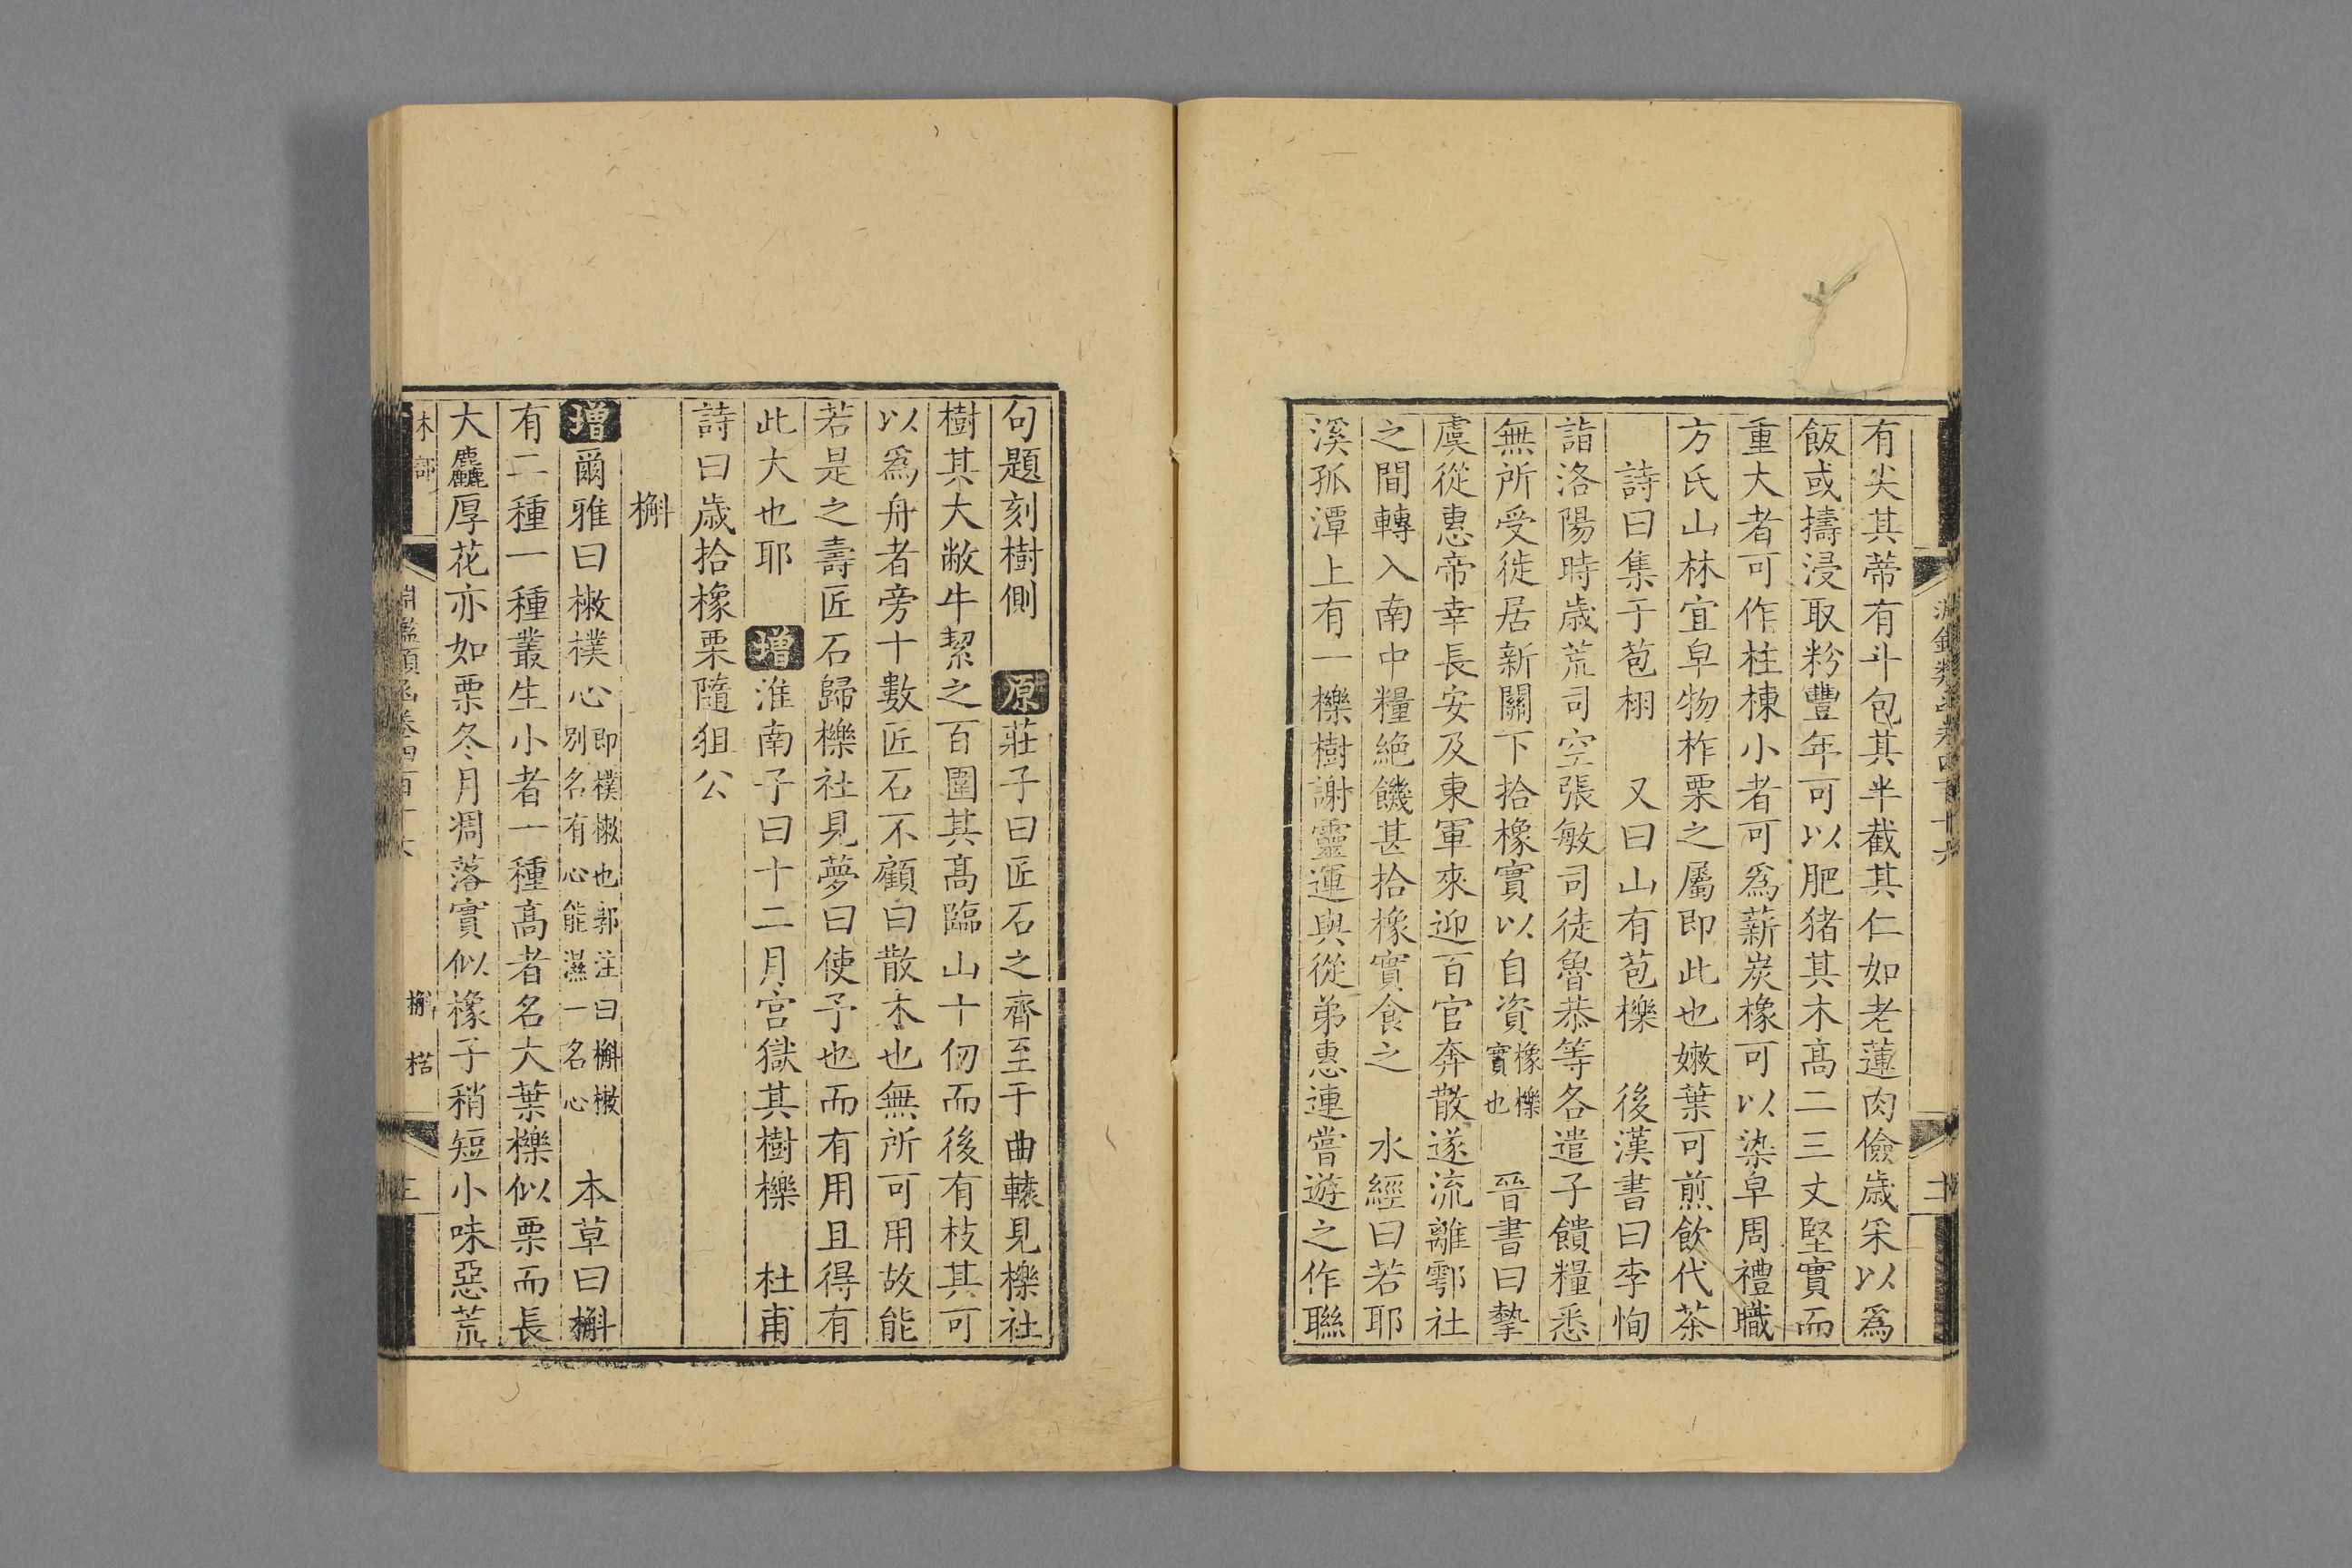 有尖其蒂有斗包其半截其仁如老蓮肉儉歲采以爲
飯或擣浸取粉豐年可以肥猪其木高二三丈堅實而
重大者可作柱棟小者可爲薪炭橡可以染皁周禮職
方氏山林宜皁物柞栗之屬即此也嫩葉可煎飲代茶
詩曰集于苞栩　又曰山有苞櫟　後漢書曰李恂
詣洛陽時歲荒司空張敏司徒魯恭等各遣子饋糧悉
無所受徙居新關下拾橡實以自資橡櫟實也　晉書曰摯
虞從惠帝幸長安及東軍來迎百官奔散遂流離鄠社
之間轉入南中糧絶饑甚拾橡實食之　水經曰若耶
溪孤潭上有一櫟樹謝靈運與從弟惠連嘗遊之作聯
句題刻樹側　原莊子曰匠石之齊至于曲轅見櫟社
樹其大敝牛絜之百圍其高臨山十仞而後有枝其可
以爲舟者旁十數匠石不顧曰散木也無所可用故能
若是之壽匠石歸櫟社見夢曰使予也而有用且得有
此大也耶　增淮南子曰十二月宮獄其樹櫟　杜甫
詩曰歲拾橡栗隨狙公
槲
增爾雅曰樕樸心即樸樕也郭注曰槲樕別名有心能濕一名心　本草曰槲
有二種一種叢生小者一種高者名大葉櫟似栗而長
大麤厚花亦如栗冬月凋落實似橡子稍短小味惡荒
木部
淵鑑類函卷四百十六
槲　楛
三